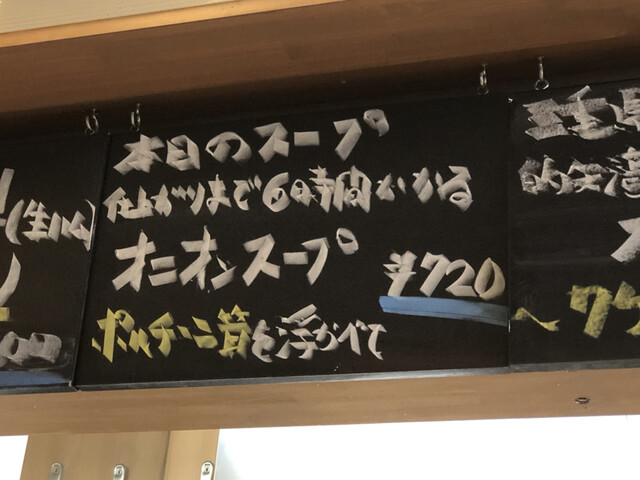 本日のスープ
仕上がりまで6時間かかる
オニオンスープ
¥720
ポルチーニ茸を浮かべて
(生ハム)